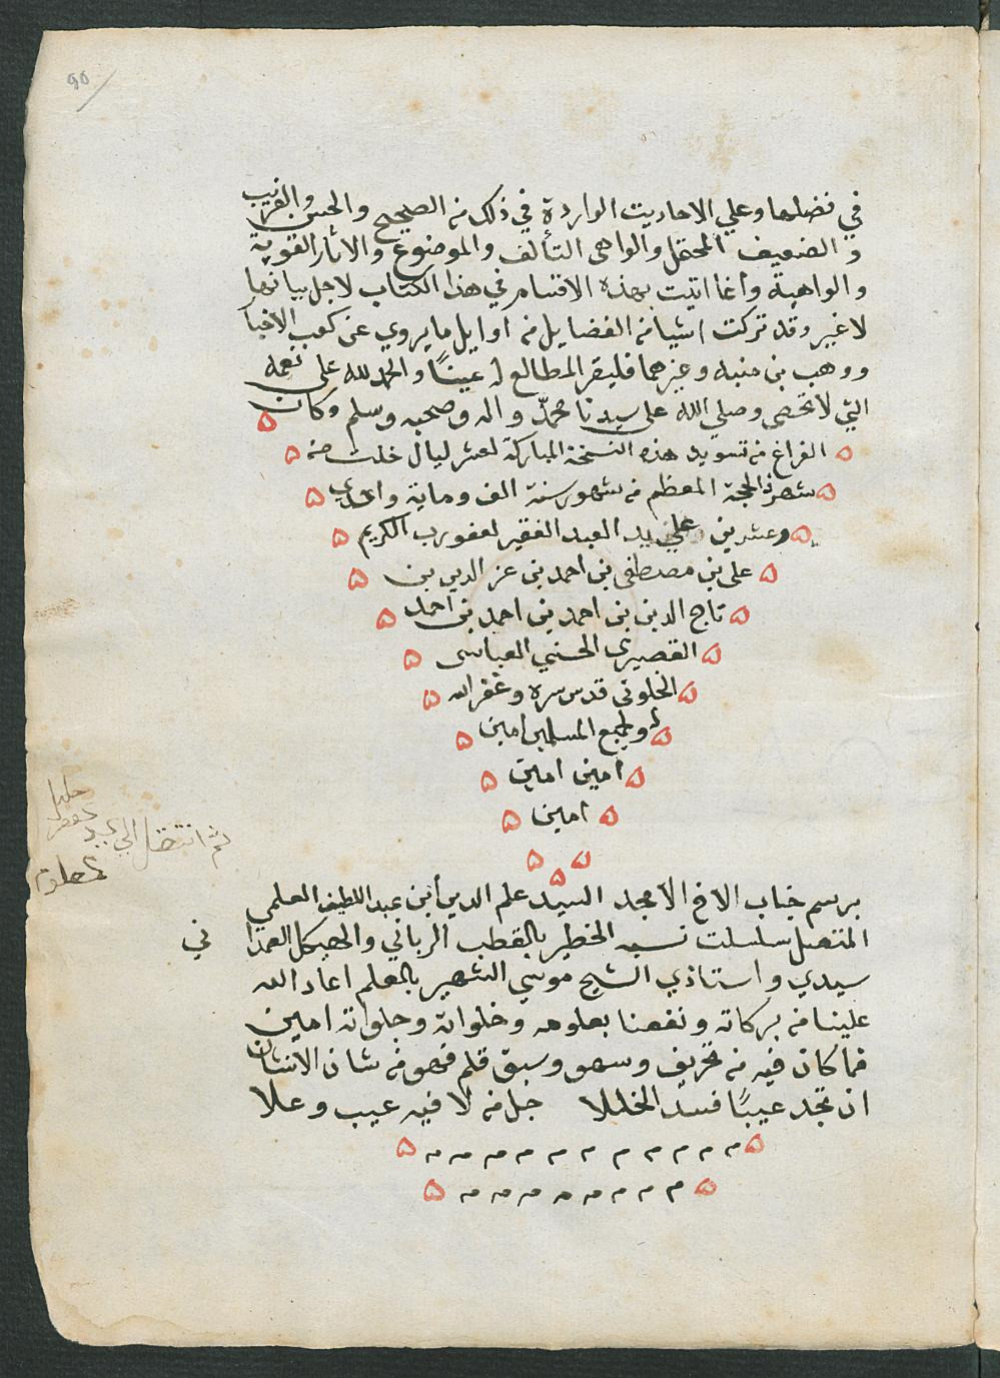 في فضلها وعلي الاحاديث الواردة في ذلك من الصحيح والحسن والغريب
والضعيف المحتمل والواهي التالف والموضوع والاثار القوية
والواهية وانما اتيت بهذه الاقسام في هذا الكتاب لاجل بيانها
لا غير وقد تركت اشيا من الفضايل من اوايل ما يروي عن كعب الاخبا
ووهب بن منبه وغيرهما فليقر المطالع له عينًا والحمد لله على نعمه
التي لا تحصى وصلي الله على سيدنا محمّد واله وصحبه وسلم وكان
الفراغ من تسويد هذه النسخة المباركة لعشر ليال خلت من
شهر ذالحجة المعظم من شهور سنة الف وماية واحدي
وعشرين علي يد العبد الفقير لعفو رب الكريم
على بن مصطفى بن احمد بن عز الدين بن
تاج الدين بن احمد بن احمد بن احمد
القصيري الحسني العباسى
الخلوتي قدس سره وغفر الله
له ولجميع المسلمين امين
امين امين
امين
برسم جناب الاخ الامجد السيّد علم الدين أبن عبد اللطيف العلمي
المتصل سلسلت نسبه الخطير بالقطب الرباني والهيكل الصمدا
ني
سيدي واستاذي الشيخ موسي الشهير بالمعلم اعاد الله
علينا من بركاته ونفعنا بعلومه وخلواته وجلواته امين
فما كان فيه من تحريف وسهو وسبق قلم فهو من شان الانسان
ان تجد عيبًا فسد الخللا جل من لا فيه عيب وعلا
ثم انتقل الي
90